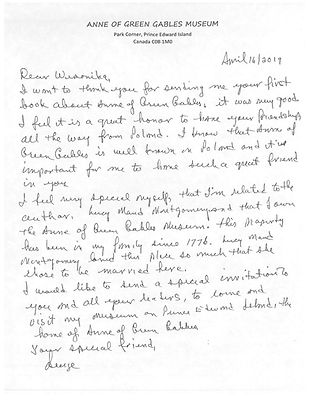 ANNE OF GREEN GABLES MUSEUM
Park Corner, Prince Edward Island
Canada C0B 1M0
April 16/2019
Dear
I want to thank you for sending me your first
book about Anne of Green Gables, it was very good
I feel it is a great honor to have your friendship
all the way from Poland. I know that Anne of
Green Gables is well known in Poland and it's
important for me to have such a great friend
in you
I feel very special myself, that I'm related to the
author. Lucy Maud Montgomery and that I own
the Anne of Green Gables Museum. This property
has been in my family since 1776. Lucy Maud
Montgomery loved this place so much that she
chose to be married here.
I would like to send a special invitation to
you and all your readers, to come and
visit my museum on Prince Edward Island, the
home of Anne of Green Gables
Your special friend,
George